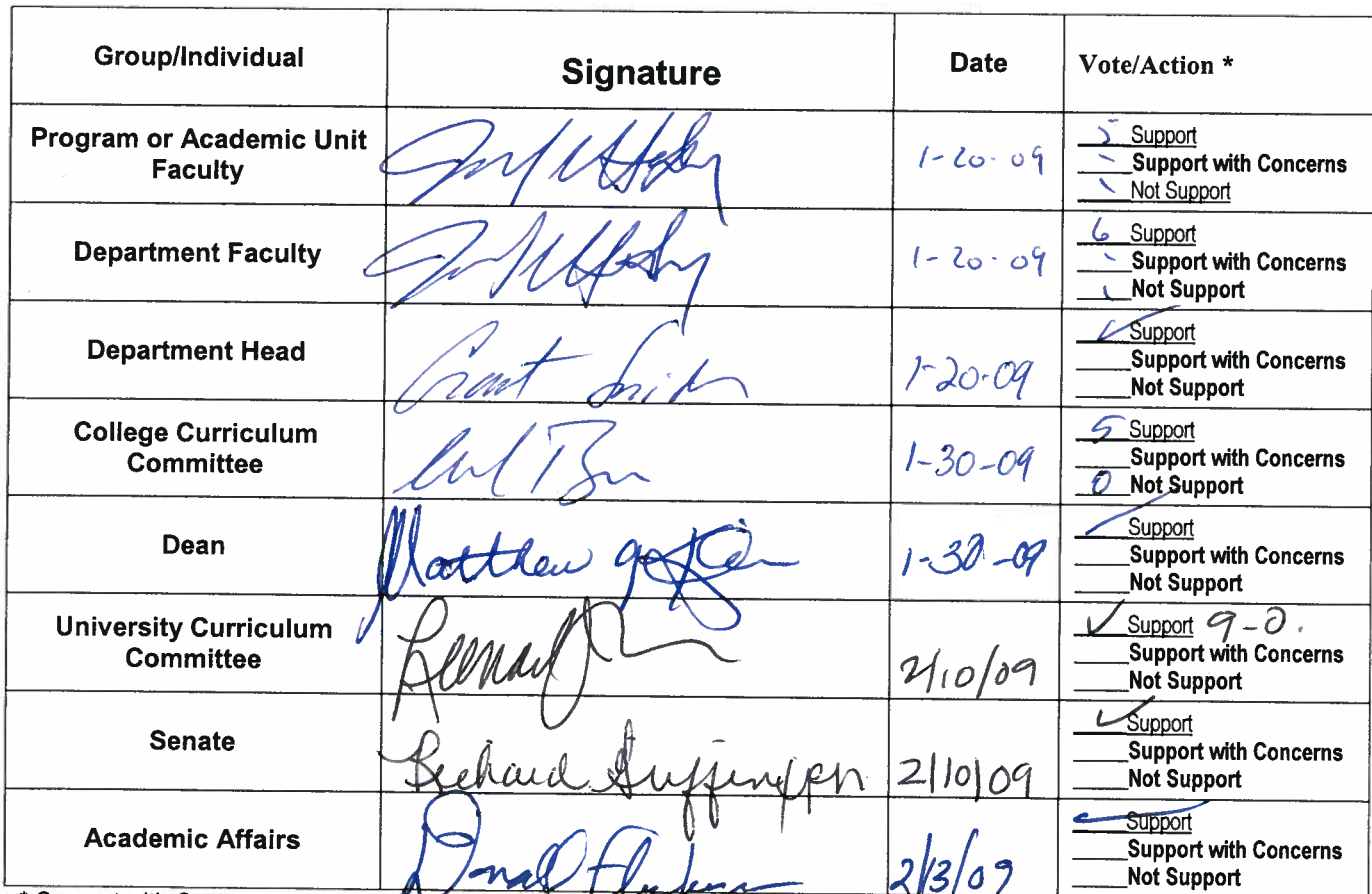 Group/Individual Signature Date Vote/Action *
Program or Academic Unit Faculty 1-20-09
5 Support
- Support with Concerns
Not Support
Department Faculty 1-20-09
6 Support
- Support with Concerns
Not Support
Department Head Grant 1-20-09
✓ Support
Support with Concerns
Not Support
College Curriculum Committee 1-30-09
5 Support
Support with Concerns
0 Not Support
Dean Matthew 1-30-09
✓ Support
Support with Concerns
Not Support
University Curriculum Committee Leonard 2/10/09
✓ Support 9-0.
Support with Concerns
Not Support
Senate Richard 2/10/09
✓ Support
Support with Concerns
Not Support
Academic Affairs Donald 2/13/09
✓ Support
Support with Concerns
Not Support